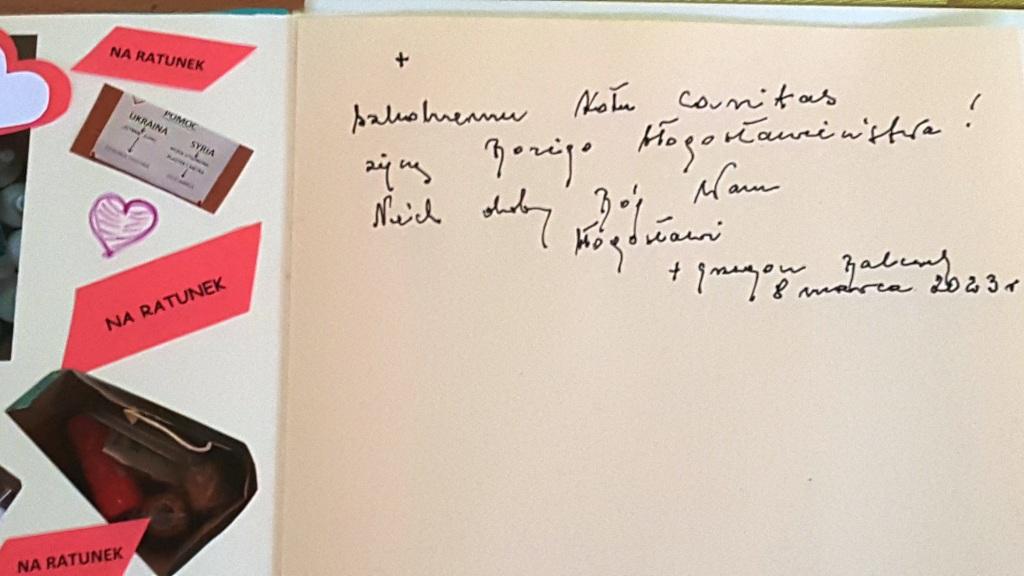 NA RATUNEK
POMOC
UKRAINA
SYRIA
NA RATUNEK
NA RATUNEK
+
Szkolnemu Kołu Caritas
życzę Bożego błogosławieństwa!
Niech dobry Bóg Wam
błogosławi
+ Grzegorz
8 marca 2023 r